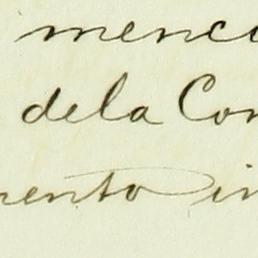 menci
dela Con
mento in